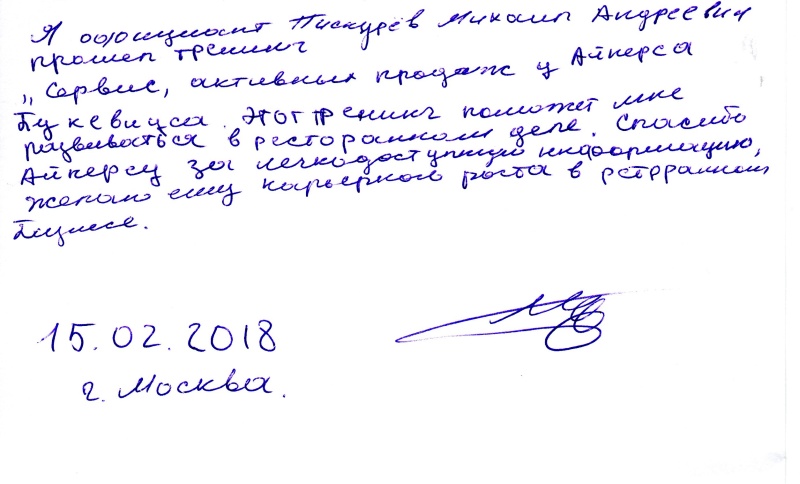 Я официант Пискурёв Михаил Андреевич
прошел тренинг
„Сервис, активных продаж у Айперса
Букевица. Этот тренинг поможет мне
развиваться в ресторанном деле. Спасибо
Айперсу за легкодоступную информацию,
желаю ему карьерного роста в ресторанном
бизнесе.
15.02.2018
г. Москва.